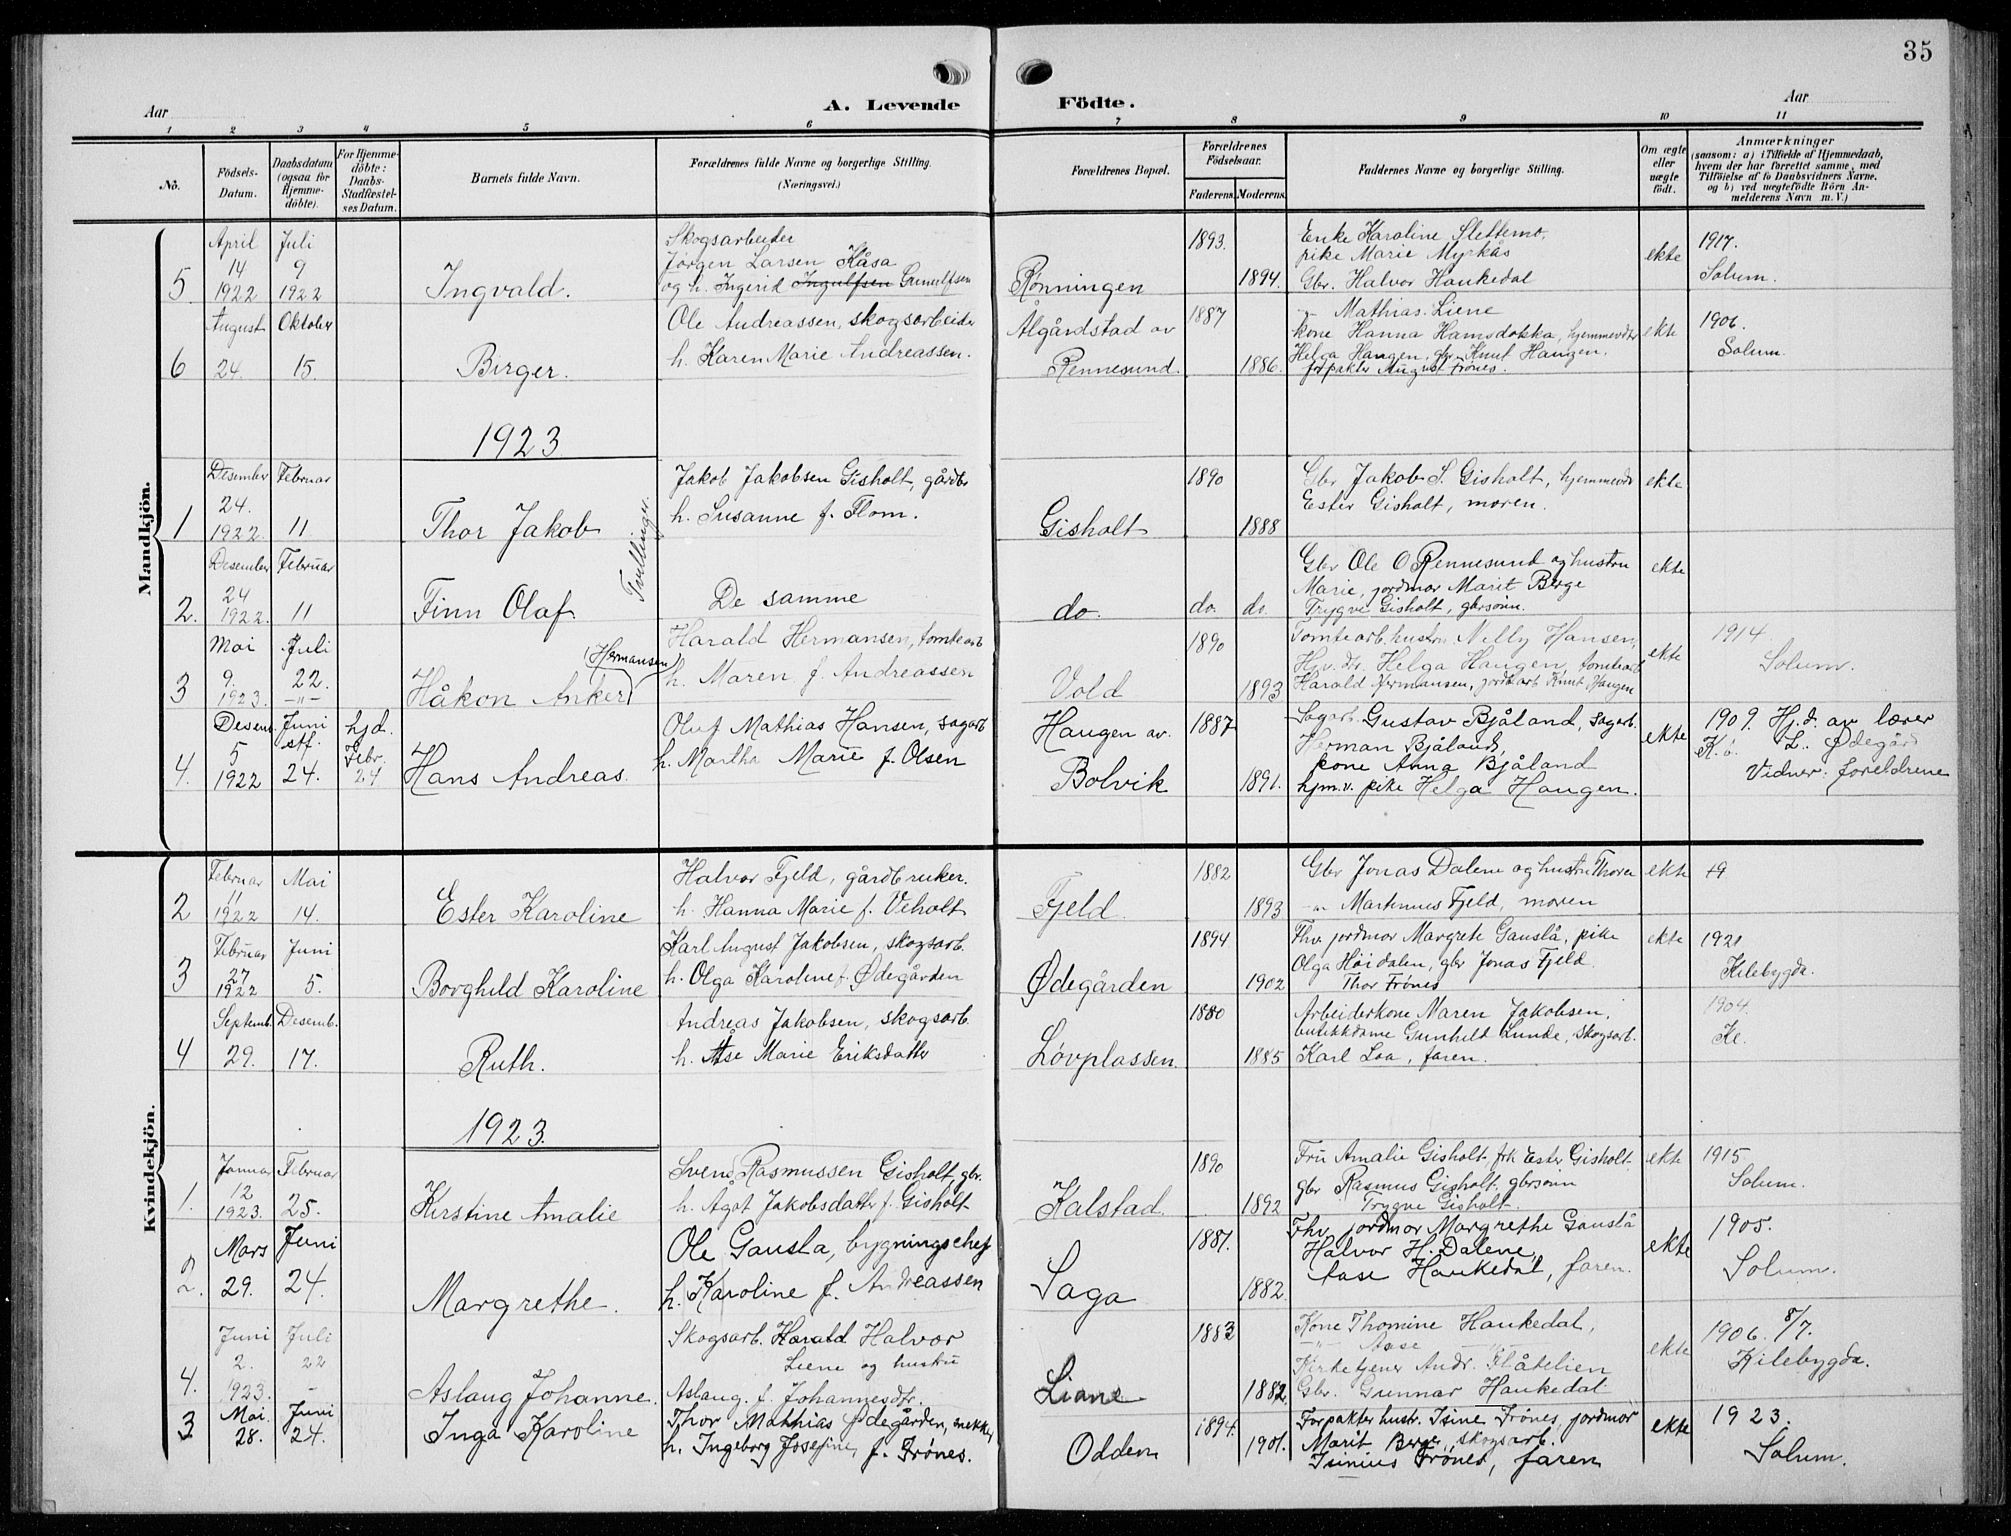 35
Aar
A. Levende Födte.
Aar
1 2 3 4 5 6 7 8 9 10 11
No.
Födsels-Datum.
Daabsdatum (ogsaa for Hjemme-döbte).
For Hjemme-döbte: Daabs-Stadfæstel-ses Datum.
Barnets fulde Navn.
Forældrenes fulde Navne og borgerlige Stilling.
(Næringsvei.)
Forældrenes Bopæl.
Forældrenes Födselsaar.
Faderens. Moderens.
Faddernes Navne og borgerlige Stilling.
Om ægte eller uægte födt.
Anmærkninger
(saasom: a) i Tilfælde af Hjemmedaab,
hvem der har forrettet samme, med
Tilföielse af to Daabsvidners Navne.
og b) ved uægtefödte Börn An-
melderens Navn m. V.)
Mandkjön.
5 April 14 1922 Juli 9 1922 Ingvald.
Skogsarbeider
Jørgen Larsen Kåsa
og h. Ingerid Ingulfsen Gunulfsen
Rønningen 1893. 1894.
Enke Karoline Slettemo,
pike Marie Myrkås
Gbr. Halvor Haukedal
ekte 1917.
Solum.
6 August 24. Oktober 15. Birger.
Ole Andreassen, skogsarbeider
h. Karen Marie Andreassen.
Ålgårdstad av
Rennesund. 1887 1886.
-"- Mathias Liene
kone Hanna Hamsdokka, hjemmevdtr
Helga Haugen, gbr Knut Haugen.
forpakter August Frønes.
ekte 1906.
Solum.
1923
1 Desember 24. 1922. Februar 11 Thor Jakob
Tvillinger.
Jakob Jakobsen Gisholt, gårdbr
h. Susanne f. Flom.
Gisholt 1890 1888
Gbr Jakob S. Gisholt, hjemmevdt
Ester Gisholt, moren.
ekte
2. Desember 24 1922. Februar 11 Finn Olaf
De samme
do. do. do.
Gbr Ole O Rennesund og hustru
Marie, jordmor Marit Berge
Trygve Gisholt, gbrsønn.
ekte
3 Mai 9. 1923. Juli 22. -"- Håkon Anker (Hermansen)
Harald Hermansen, tomtearb
h. Maren f. Andreassen
Vold 1890 1893
Tomtearb. hustru Nelly Hansen,
Hjv. dtr. Helga Haugen, tomtearb
Harald Hermansen, jordarb Knut Haugen
ekte 1914.
Solum.
4. Desem. 5 1922 Juni stf. 24. hjd. Febr. 24 Hans Andreas.
Oluf Mathias Hansen, sagarb
h. Martha Marie f. Olsen
Haugen av.
Bolvik 1887 1891.
Sagarb. Gustav Bjåland, sagarb.
Herman Bjåland,
kone Anna Bjåland
hjm.v. pike Helga Haugen.
ekte 1909. Hj.d. av lærer
L. Ødegård
Vidner: foreldrene
Kvindekjön.
2 Februar 11 1922 Mai 14. Ester Karoline
Halvor Fjeld, gårdbruker.
h. Hanna Marie f. Veholt
Fjeld. 1882 1893
Gbr Jonas Dalene og hustru Thora
-"- Martinius Fjeld, moren
ekte
3 Februar 27 1922 Juni 5. Borghild Karoline
Karl August Jakobsen, skogsarb.
h. Olga Karoline f. Ødegården
Ødegården 1894 1902
Fhv. jordmor Margrete Gauslå, pike
Olga Høidalen, gbr Jonas Fjeld
Thor Frønes
ekte 1921
Kilebygda.
4 Septemb. 29. Desemb. 17. Ruth.
Andreas Jakobsen, skogsarb.
h. Åse Marie Eriksdatter
Løvplassen 1880 1885
Arbeiderkone Maren Jakobsen,
butikkdame Gunhild Lunde, skogsarb.
Karl Loa, faren.
1904.
Ke.
1923.
1. Januar 12 1923. Februar 25. Kirstine Amalie
Svend Rasmussen Gisholt, gbr.
h. Ågot Jakobsdatter f. Gisholt
Kalstad. 1890 1892
Fru Amalie Gisholt, frk Ester Gisholt
gbr Rasmus Gisholt, gbrsønn
Trygve Gisholt.
ekte 1915
Solum.
2. Mars 29. Juni 24. Margrethe.
Ole Gausla, bygningschef
h. Karoline f. Andreassen
Saga 1881. 1882.
Fhv. jordmor Margrethe Gauslå
Halvor H. Dalene,
Aase Haukedal, faren.
ekte 1905.
Solum.
4. Juni 2. 1923. Juli 22 Aslaug Johanne.
Skogsarb. Harald Halvor
Liene og hustru
Aslaug. f. Johannesdtr.
Liane 1883 1882
Kone Thomine Haukedal,
-"- Aase
Kirketjener Andr. Flåtelien
Gbr. Gunnar Haukedal
ekte 1906. 8/7.
Kilebygda.
3 Mai 28. Juni 24. Inga Karoline
Thor Mathias Ødegården, snekker,
h. Ingeborg Josefine, f. Frønes.
Odden 1894. 1901.
Forpakter hustr. Isine Frønes, jordmor
Marit Berge, skogsarb.
Isinius Frønes, faren
ekte 1923.
Solum.